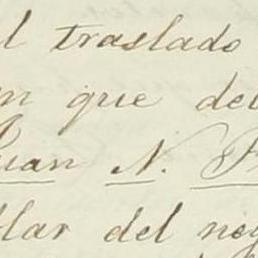 l traslado
n que de
Juan N.
lar del neg